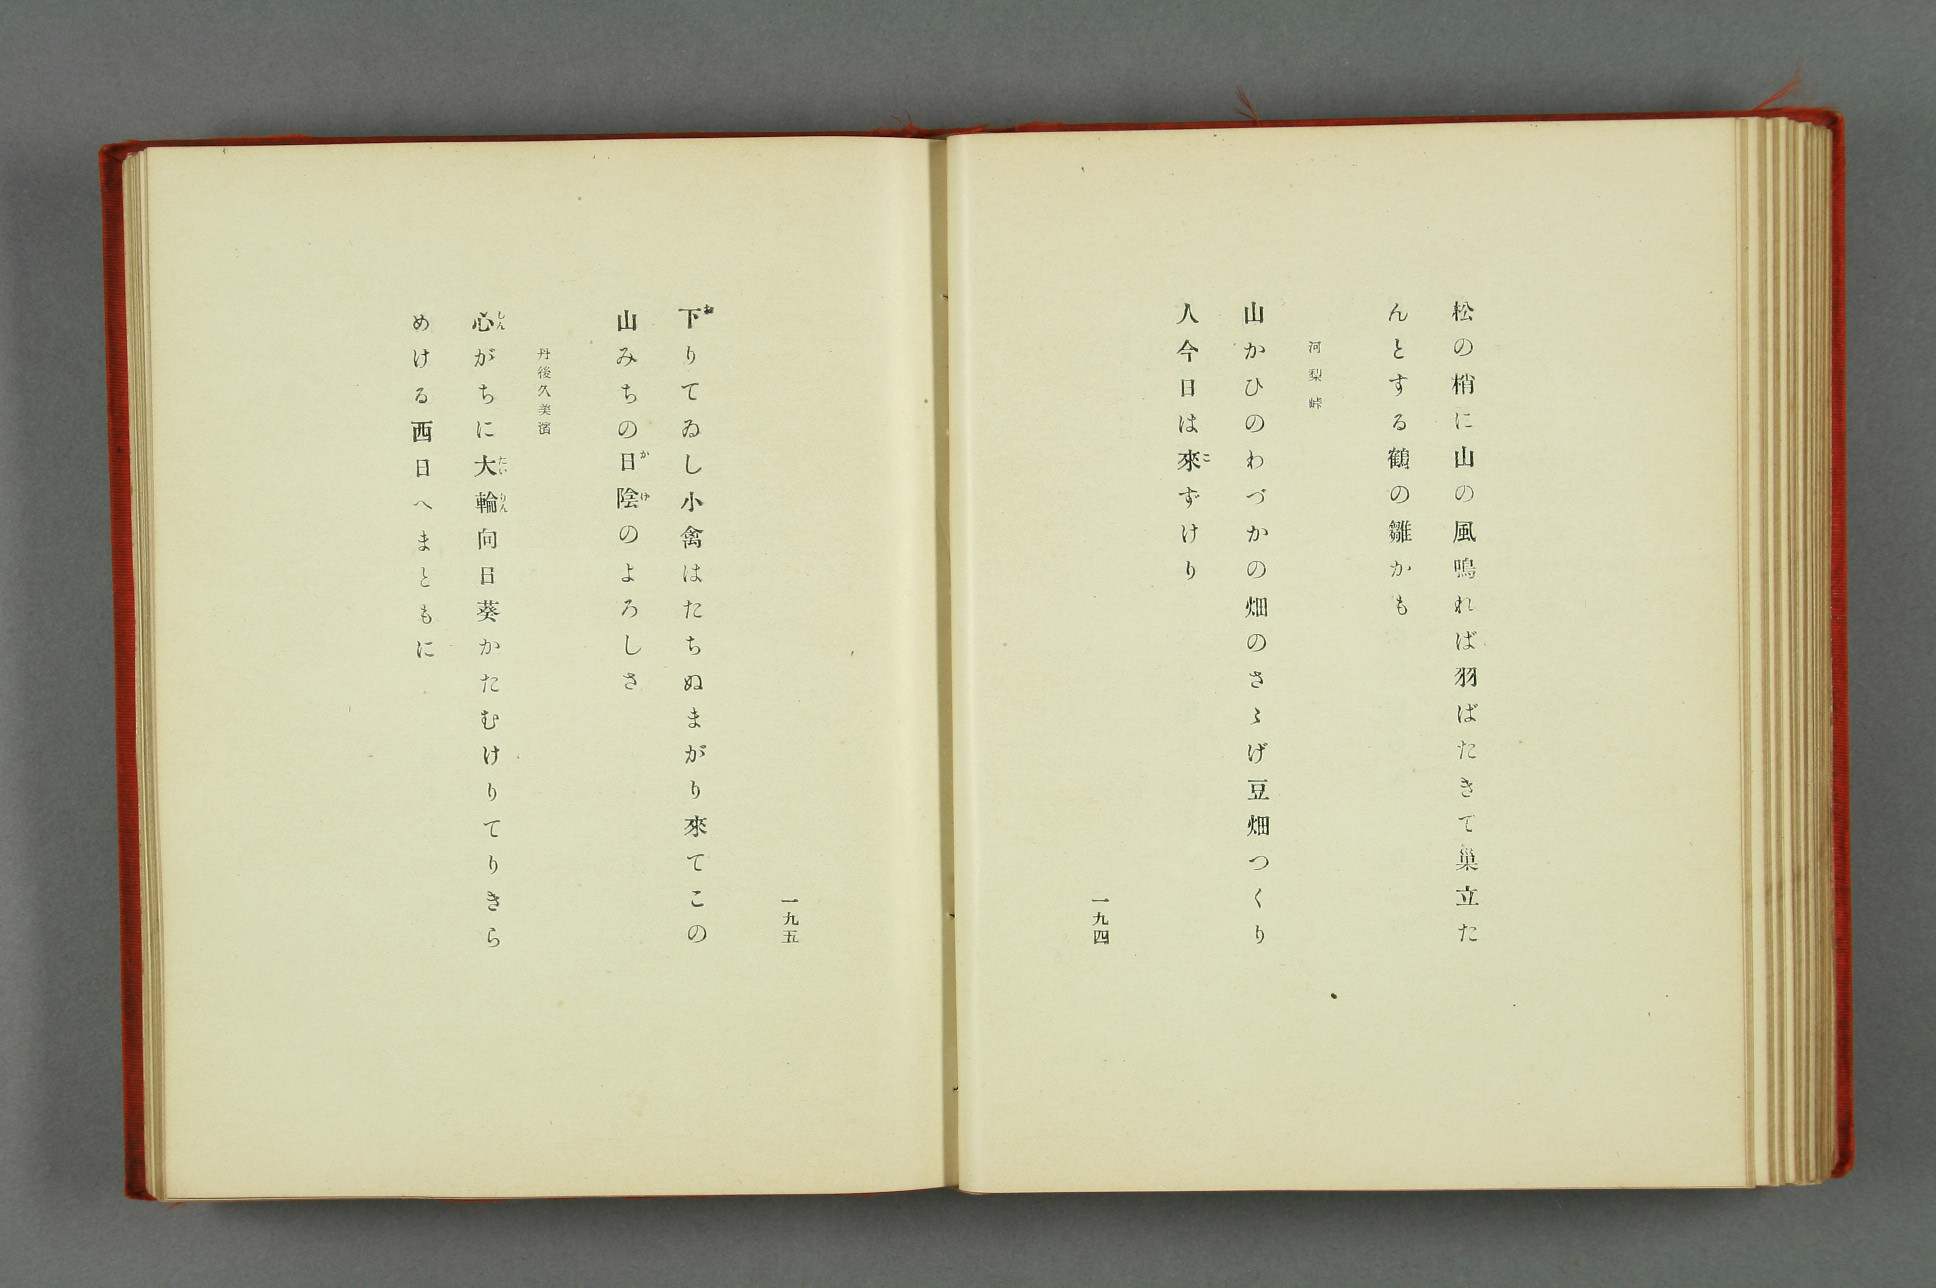 松の梢に山の風鳴れば羽ばたきて巣立た
んとする鶴の雛かも
河梨峠
山かひのわづかの畑のさゝげ豆畑つくり
人今日は來ずけり
一九四
一九五
下りてゐし小禽はたちぬまがり來てこの
山みちの日陰のよろしさ
丹後久美濱
心がちに大輪向日葵かたむけりてりきら
めける西日へまともに